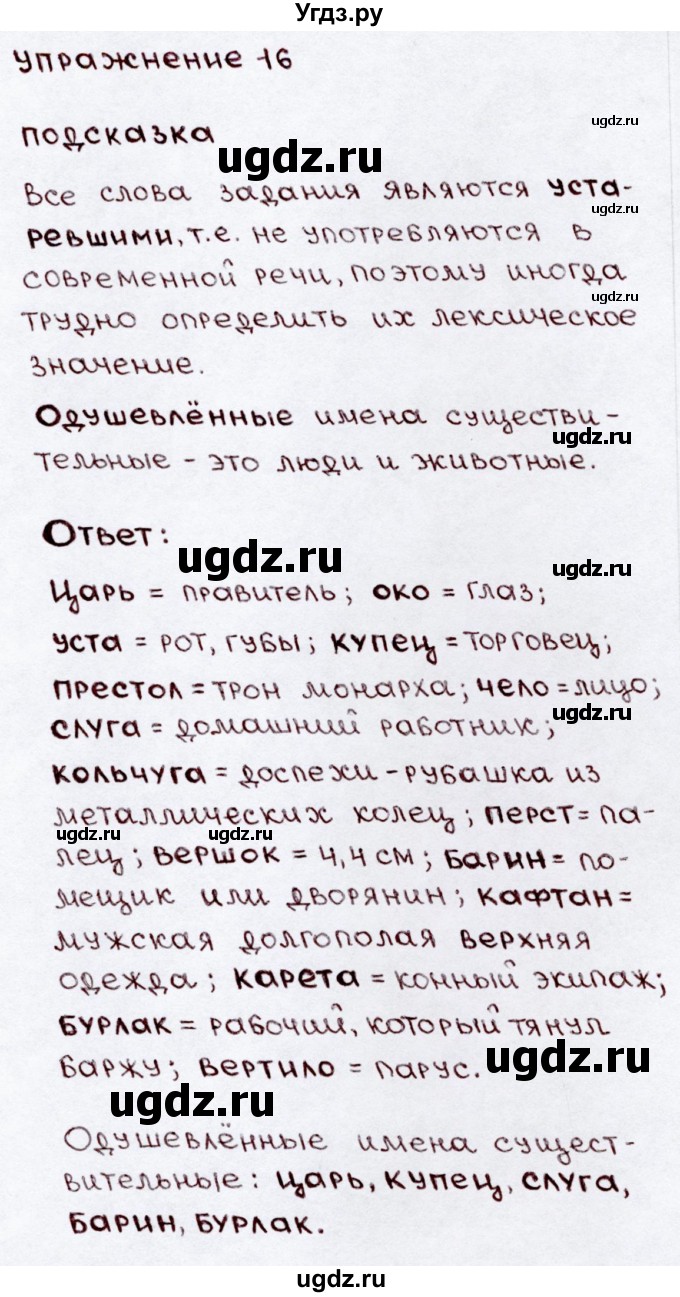 Угдз.ру
Упражнение 16
ugdz.ru
Подсказка
ugdz.ru
Все слова задания являются уста-
ugdz.ru
ревшими, т.е. не употребляются в
современной речи, поэтому иногда
ugdz.ru
трудно определить их лексическое
значение.
Одушевлённые имена существи-
ugdz.ru
тельные - это люди и животные.
Ответ:
ugdz.ru
ugdz.ru
Царь = правитель; око = глаз;
уста = рот, губы; купец = торговец;
престол = трон монарха; чело = лицо;
ugdz.ru
слуга = домашний работник;
кольчуга = доспехи - рубашка из
металлических колец; перст = па-
ugdz.ru
ugdz.ru
лец; вершок = 4,4 см; барин = по-
мещик или дворянин; кафтан =
мужская долгополая верхняя
одежда; карета = конный экипаж;
бурлак = рабочий, который тянул
ugdz.ru
баржу; вертило = парус.
ugdz.ru
Одушевлённые имена сущест-
вительные: царь, купец, слуга,
барин, бурлак.
ugdz.ru